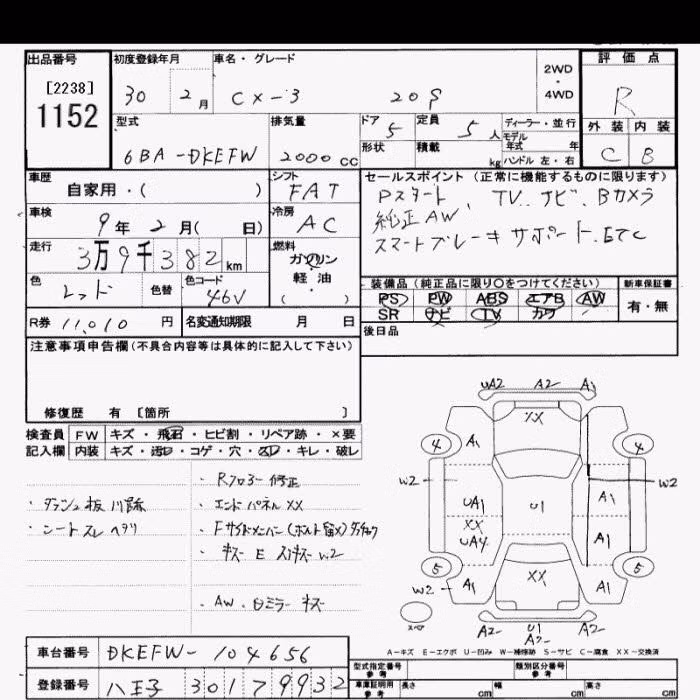 出品番号 初度登録年月 車名・グレード 2WD・4WD 評価点
[2238] 1152 30 2月 CX-3 20S R
型式 排気量 ドア 定員 ディーラー・並行 外装 内装
6BA-DKEFW 2000cc 5 5人 モデル年式 年 C B
形状 積載 kg ハンドル 左・右
車歴 シフト セールスポイント (正常に機能するものに限ります)
自家用・( ) FAT Pスタート、TV、ナビ、Bカメラ
車検 冷房 純正AW、
9年 2月( 日) AC スマートブレーキサポート、ETC
走行 燃料
3万9千382km ガソリン
色 色替 色コード 軽・油 装備品 (純正品に限り○をつけてください) 新車保証書
レッド 46V ( ・ ) PS PW ABS エアB AW 有・無
SR ナビ TV カワ
R券 11,010円 名変通知期限 月 日 後日品
注意事項申告欄(不具合内容等は具体的に記入して下さい)
修復歴 有 [箇所 ]
検査員 FW キズ・飛石・ヒビ割・リペア跡・×要
記入欄 内装 キズ・汚レ・コゲ・穴・スレ・キレ・破レ
・Rフロアー修正
・ダッシュ板 ・エンドパネルXX
・シートスレ ヘタリ ・Fサイドメンバー(ボルト留メ)
・キズ E スリキズ W2
・AW、ミラー キズ
UA2 A2 A1
XX
4 A1 4
W2 W2
UA1 U1 A1
XX
UA4 A1
5 5
W2 A1 XX A1
スペア A2 U1 A2
A2
A-キズ E-エクボ U-凹み W-補修跡 S-サビ C-腐食 XX-交換済
車台番号 DKEFW-104656
登録番号 八王子 301 7 9932
型式指定番号 参考 類別区分番号 参考
車庫証明用 参考 長さ cm 幅 cm 高さ cm